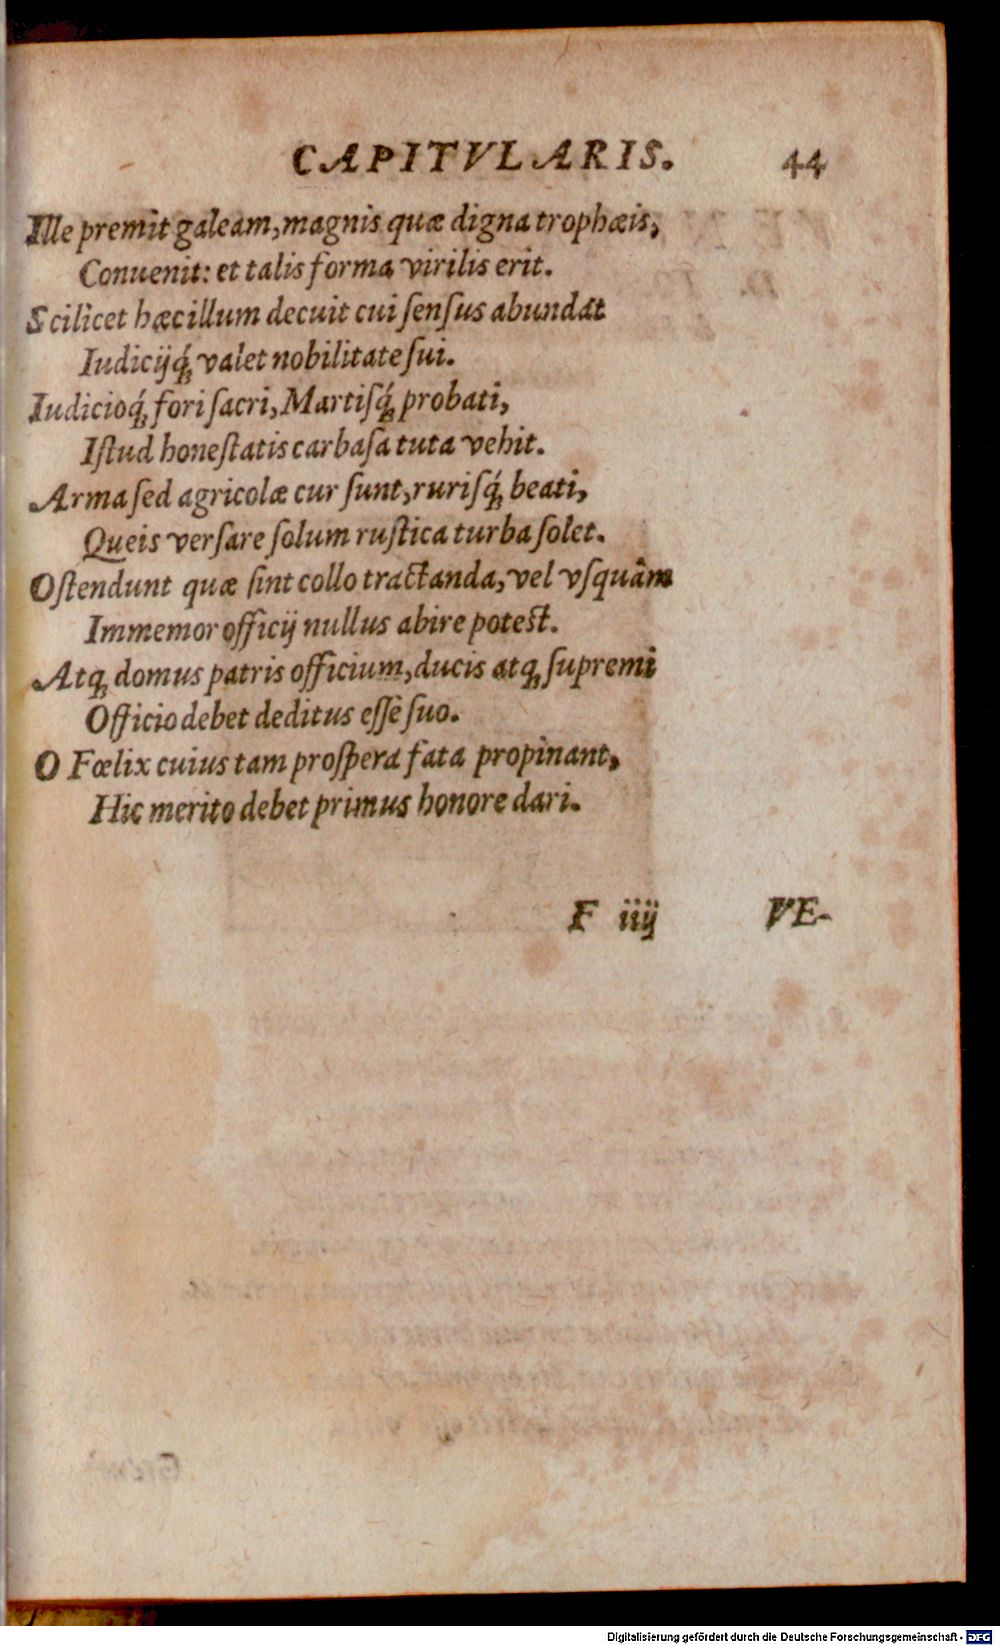 CAPITVLARIS. 44
Ille premit galeam, magnis quæ digna trophæis,
Conuenit: et talis forma virilis erit.
Scilicet hæc illum decuit cui ſenſus abundat
Iudicijq́; valet nobilitate ſui.
Iudicioq́; fori ſacri, Martiſq́; probati,
Iſtud honeſtatis carbaſa tuta vehit.
Arma ſed agricolæ cur ſunt, ruriſq́; beati,
Queis verſare ſolum ruſtica turba ſolet.
Oſtendunt quæ ſint collo tractanda, vel vſquàm
Immemor officij nullus abire poteſt.
Atq; domus patris officium, ducis atq; ſupremi
Officio debet deditus eſſe ſuo.
O Fœlix cuius tam proſpera fata propinant,
Hic merito debet primus honore dari.
F iiij VE-
Digitalisierung gefördert durch die Deutsche Forschungsgemeinschaft - DFG